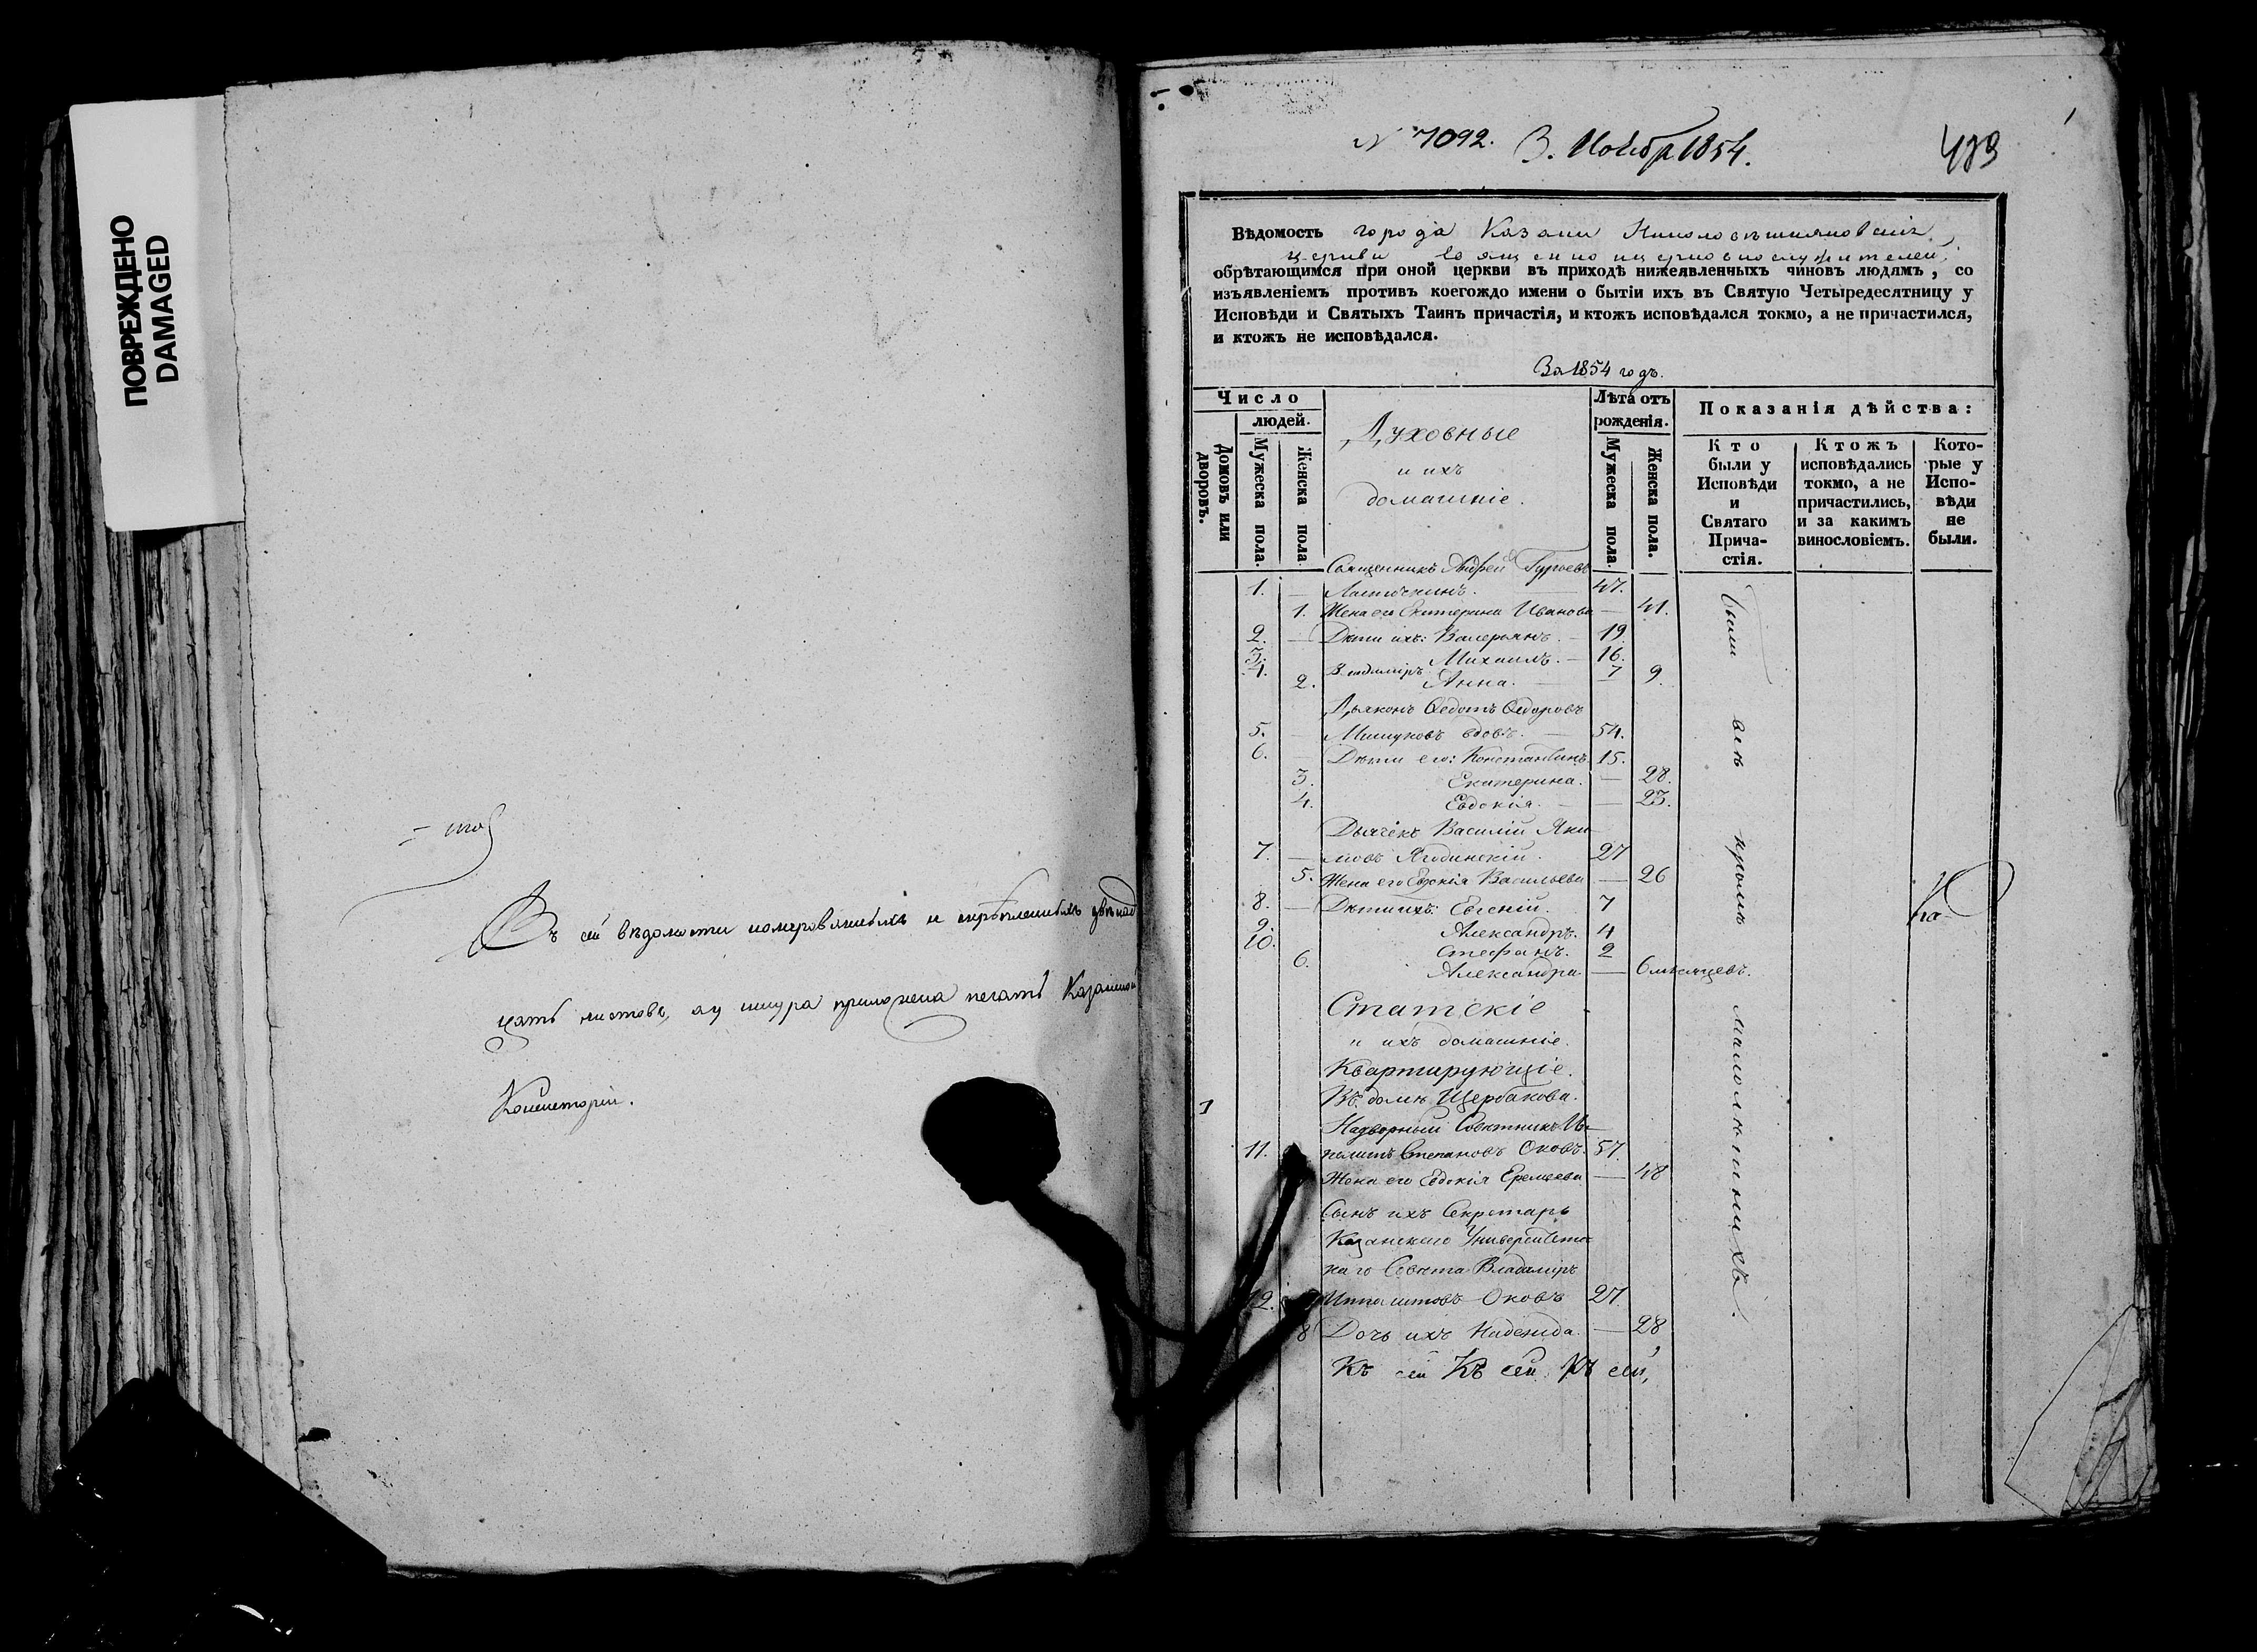 ПОВРЕЖДЕНО
DAMAGED
Въ сей вѣдомости номерованныхъ и скрѣпленныхъ двѣнад
цать листовъ, а у шнура приложена печать Казанской
Консисторіи.
№ 7092. 3. Ноября 1854.
1
Вѣдомость города Казани Николовешняковской
церкви священноицерковнослужителей,
обрѣтающимся при оной церкви въ приходѣ нижеявленныхъ чиновъ людямъ, со
изъявленіемъ противъ коегождо имени о бытіи ихъ въ Святую Четыредесятницу у
Исповѣди и Святыхъ Таинъ причастія, и ктожъ исповѣдался токмо, а не причастился,
и ктожъ не исповѣдался.
За 1854 годъ.
Число
людей.
Домовъ или дворовъ.
Мужеска пола.
Женска пола
Духовные
и ихъ
домашніе.
Лѣта отъ
рожденія.
Мужеска пола
Женска пола.
Показанія дѣйства:
Кто
были у
Исповѣди
и
Святаго
Прича-
стія.
Ктожъ
исповѣдались
токмо, а не
причастились,
и за какимъ
винословіемъ.
Кото-
рые у
Испо-
вѣди
не
были.
Священникъ Андрей Гурьевъ
1. — Ласточкинъ. 47.
1. Жена его Екатерина Иванова — 41.
2. — Дѣти ихъ: Валерьянъ. — 19.
3. Михаилъ. — 16.
4. Владиміръ 7
2. Анна. — 9.
Дьяконъ Ѳедотъ Ѳедоровъ
5. — вдовъ. — 54.
6. Дѣти его: Константинъ 15.
3. Екатерина. — 28.
4. Евдокія. — 23.
Дьячекъ Василій Яки
7. — мовъ Ягодинскій. 27
5. Жена его Евдокія Васильева — 26
8. — Дѣти ихъ: Евгеній. 7
9. Александръ. 4
10. Стефанъ. 2
6. Александра — 6 мѣсяцевъ.
были всѣ кромѣ малолѣтнихъ.
Статскіе
и ихъ домашніе.
Квартирующіе.
1 Въ домѣ Щербакова.
Надворный Совѣтникъ Ип-
11. политъ Степановъ Оковъ. 57.
Жена его Евдокія Еремеева — 48
Сынъ ихъ Секретарь
Казанскаго Университетс
каго Совѣта Владиміръ
12. Ипполитовъ Оковъ 27.
8 Дочь ихъ Надежда. — 28
Къ сей Къ сей Къ сей,